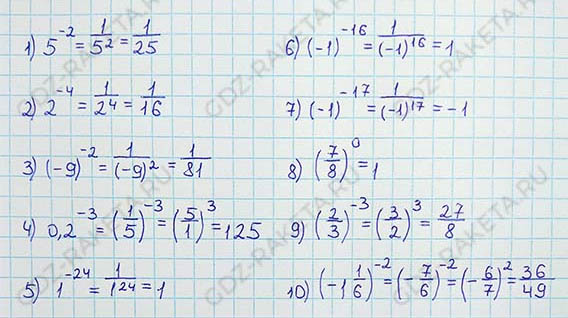 1) 5^{-2} = \frac{1}{5^2} = \frac{1}{25}
2) 2^{-4} = \frac{1}{2^4} = \frac{1}{16}
3) (-9)^{-2} = \frac{1}{(-9)^2} = \frac{1}{81}
4) 0,2^{-3} = (\frac{1}{5})^{-3} = (\frac{5}{1})^3 = 125
5) 1^{-24} = \frac{1}{1^{24}} = 1
6) (-1)^{-16} = \frac{1}{(-1)^{16}} = 1
7) (-1)^{-17} = \frac{1}{(-1)^{17}} = -1
8) (\frac{7}{8})^0 = 1
9) (\frac{2}{3})^{-3} = (\frac{3}{2})^3 = \frac{27}{8}
10) (-1\frac{1}{6})^{-2} = (-\frac{7}{6})^{-2} = (-\frac{6}{7})^2 = \frac{36}{49}
GDZ-RAKETA.RU
GDZ-RAKETA.RU
GDZ-RAKETA.RU
GDZ-RAKETA.RU